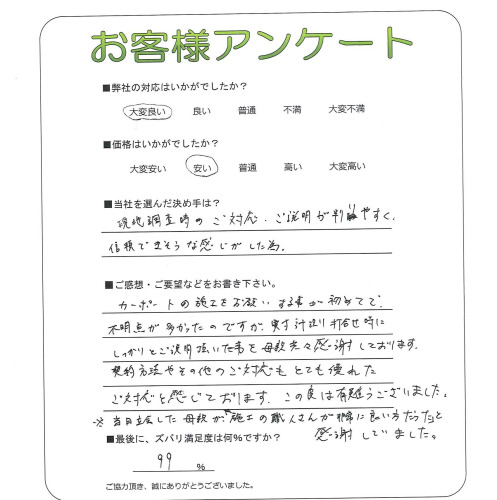 お客様アンケート
■弊社の対応はいかがでしたか?
大変良い 良い 普通 不満 大変不満
■価格はいかがでしたか?
大変安い 安い 普通 高い 大変高い
■当社を選んだ決め手は?
現地調査時のご対応・ご説明が判りやすく、
信頼できそうな感じがした為。
■ご感想・ご要望などをお書き下さい。
カーポートの施工をお願いする事が初めてで、
不明点が多かったのですが、実寸計測り打合せ時に
しっかりとご説明払いた事を母親共々感謝しております。
契約方法やその他のご対応もとても優れた
ご対応と感じております。この度は有難うございました。
※当日立会した母親が施工の職人さんが非常に良い方だったと
感謝していました。
■最後に、ズバリ満足度は何%ですか?
99 %
ご協力頂き、誠にありがとうございました。